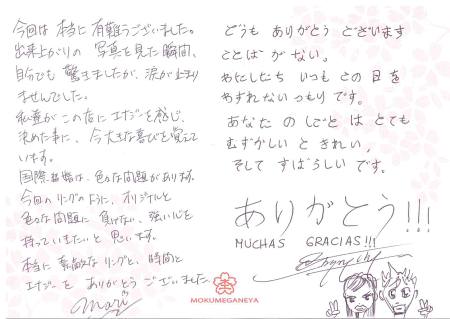 今回は 本当に 有難うございました。
出来上がりの 写真を見た瞬間、
自分でも 驚きましたが、涙が止まり
ませんでした。
私達が この店に エナジーを感じ、
決めた事に、今大きな喜びを覚えて
います。
国際結婚は、色々な問題が有ります。
今回の リングのように、オリジナルと
色々な問題に 負けない、強い心を
持っていきたいと 思います。
本当に 素敵なリングと、時間と
エナジーを ありがとう ございました。
mari
どうも ありがとう ございます
ことば が ない。
わたしたち いつも この 日 を
わすれない つもり です。
あなた の しごと は とても
むずかしい と きれい,
そして すばらしい です。
ありがとう!!!
MUCHAS GRACIAS!!!
MOKUMEGANEYA